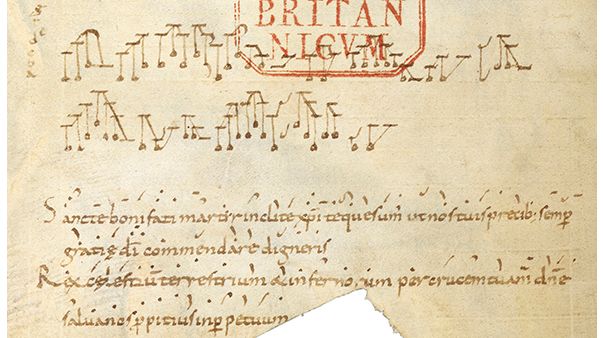 BRITAN
NICVM
Sancte bonifati martir inclite xp̄i te quesum̄ ut nos tuis precib; semp̄
gratię d̄i commendare digneris
Rex cęlestiū terrestrium & infernorum per crucem tuam d̄ne
salua nos p̄pitius inp̄petuum